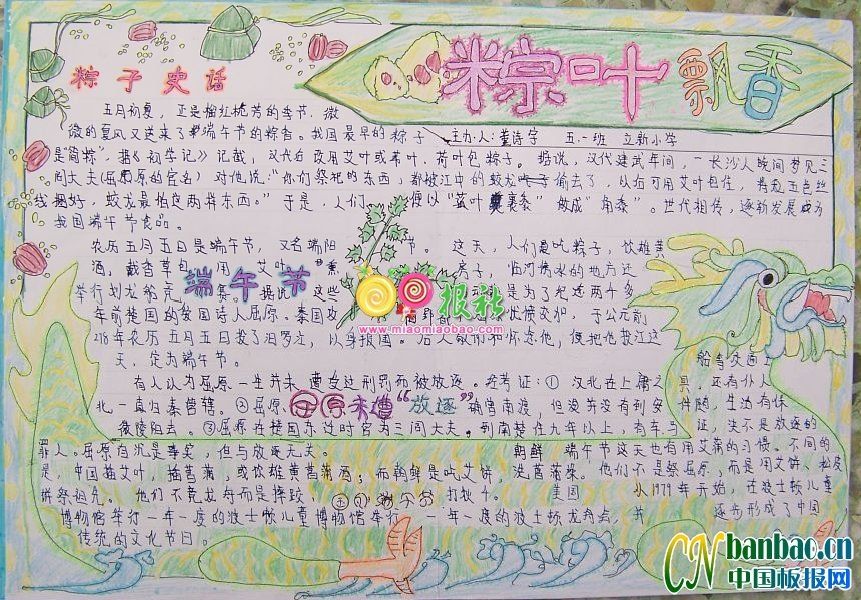 粽叶飘香
粽子史话
五月初夏，正是榴红桃芳的季节，微
微的夏风又送来了端午节的粽香。我国最早的粽子
主办人：董诗宇 五.一班 立新小学
是"简粽"。据《初学记》记载，汉代后改用艾叶或茗叶、荷叶包粽子。据说，汉代建武年间，一长沙人晚间梦见三
闾大夫(屈原的官名)对他说："你们祭祀的东西，都被江中的蛟龙偷去了，以后可用艾叶包住，五色丝
线捆好，蛟龙最怕这两样东西。"于是，人们便以"菰叶裹黍"做成"角黍"。世代相传，逐渐发展成为
我国端午节食品。
农历五月五日是端午节，又名端阳节。这天，人们是吃粽子，饮雄黄
酒，戴香草包，用艾叶熏房子，临河傍水的地方还
举行划龙船竞赛。据说这些是为了纪念两千多
端午节
年前楚国的爱国诗人屈原。秦国攻忧愤交加，于公元前
278年农历五月五日投了汨罗江，以身报国。后人敬仰和怀念他，便把他投江这
天，定为端午节。
有人认为屈原一生并未遭受过刑罚而被放逐。考证：①汉北在上庸之
北一直归秦管辖。②屈原
屈原未遭"放逐"
确曾南渡，但没并没有到安
徽陵阳去。③屈原在楚国东迁时官为三闾大夫。到南楚住九年以上，有车马
船等交通工
具，还有仆人
伴随，生活有保
证，决不是放逐的
罪人。屈原自沉是事实，但与放逐无关。
朝鲜 端午节这天也有用艾蒲的习惯。不同的
是，中国插艾叶，插菖蒲，或饮雄黄菖蒲酒；而朝鲜是吃艾饼，洗菖蒲澡。他们不是祭屈原，而是用艾饼、松皮
饼祭祖先。他们不竞龙舟而是摔跤、打秋千。
美国 从1979年开始，在波士顿儿童
博物馆举行一年一度的波士顿儿童博物馆举行一年一度的波士顿龙舟会，并逐步形成了中国
传统的文化节日。
报社
www.miaomiaobao.com
CNbanbao.cn
中国板报网